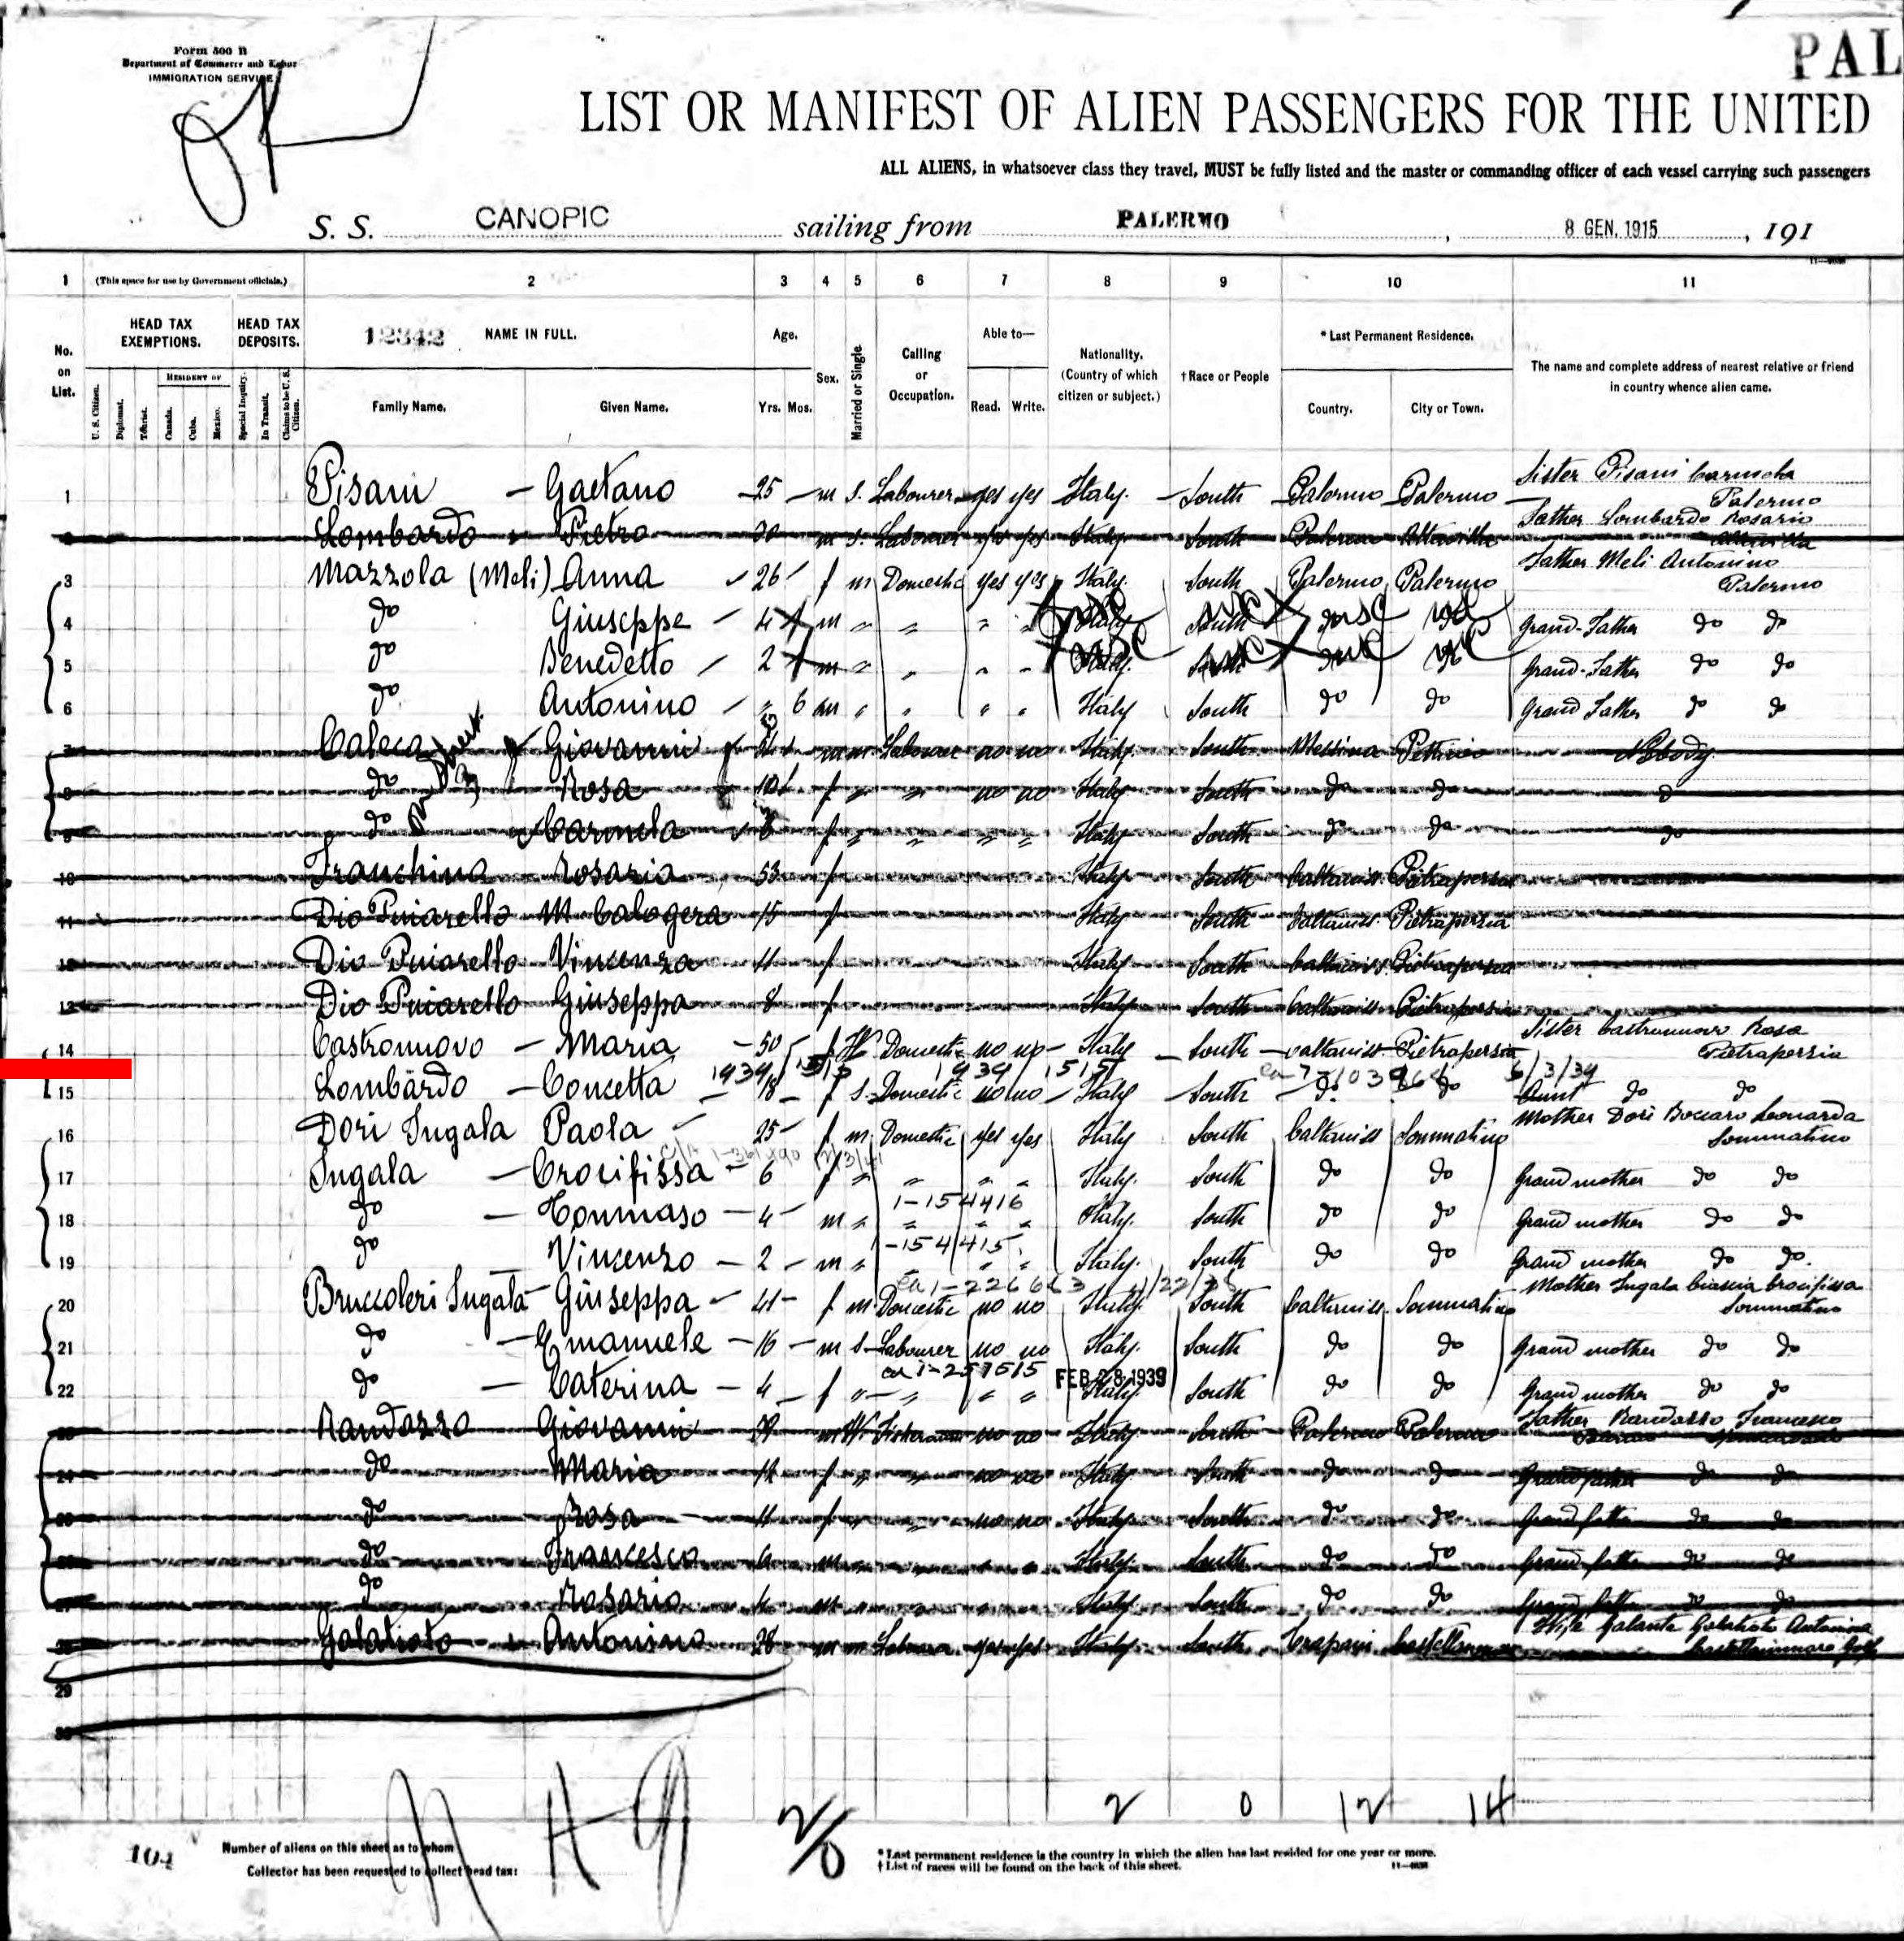 PAL
Form 500 B
Department of Commerce and Labor
IMMIGRATION SERVICE
OK
LIST OR MANIFEST OF ALIEN PASSENGERS FOR THE UNITED
ALL ALIENS, in whatsoever class they travel, MUST be fully listed and the master or commanding officer of each vessel carrying such passengers
S. S. CANOPIC sailing from PALERMO, 8 GEN. 1915, 191
1 (This space for use by Government officials.) 2 3 4 5 6 7 8 9 10 11
No. on List. HEAD TAX EXEMPTIONS. HEAD TAX DEPOSITS. 12342 NAME IN FULL. Age. Sex. Married or Single Calling or Occupation. Able to— Nationality. (Country of which citizen or subject.) †Race or People *Last Permanent Residence. The name and complete address of nearest relative or friend in country whence alien came.
U. S. Citizen. Diplomat. Tourist. RESIDENT OF Canada. Cuba. Mexico. Special Inquiry. In Transit. Claims to be U. S. Citizen. Family Name. Given Name. Yrs. Mos. Read. Write. Country. City or Town.
1 Pisani — Gaetano 25 m s. Labourer yes yes Italy. South Palermo Palermo Sister Pisani Carmela Palermo
Lombardo Pietro 30 m s. Labourer yes yes Italy South Palermo Altavilla Father Lombardo Rosario Altavilla
3 Mazzola (Meli) Anna 26 f m Domestic yes yes Italy South Palermo Palermo Father Meli Antonino Palermo
4 do Giuseppe 4 m " " " " Italy South Grand-Father do do
5 do Benedetto 2 m " " " " Italy South Grand-Father do do
6 do Antonino " 6 m " " " " Italy South do do Grand Father do do
7 Caleca Giovanni m m Labourer no no Italy South Messina Nobody
8 do Rosa f " " no no Italy South do do do
9 do Carmela f " " " " Italy South do do do
10 Franchina Rosaria 53 f Italy South Caltaniss. Pietrapersia
11 Dio Puiarello M. Calogera 15 f Italy South Caltaniss. Pietrapersia
12 Dio Puiarello Vincenza 11 f Italy South Caltaniss. Pietrapersia
13 Dio Puiarello Giuseppa 8 f Italy South Caltaniss. Pietrapersia
14 Castronuovo — Maria 50 f W Domestic no no Italy South Caltaniss. Pietrapersia Sister Castronuovo Rosa Pietrapersia
6/3/39
15 Lombardo — Concetta 18 f s. Domestic no no Italy South do. do Aunt do do
16 Dori Ingala Paola 25 f m. Domestic yes yes Italy South Caltaniss Sommatino Mother Dori Boccaro Leonarda Sommatino
17 Ingala — Crocifissa 6 f " " " " Italy. South do do Grand mother do do
1-154416
18 do — Tommaso 4 m " " " " Italy. South do do Grand mother do do
-154415
19 do — Vincenzo 2 m " " " Italy. South do do Grand mother do do.
20 Bruccoleri Ingala Giuseppa 41 f m. Domestic no no Italy South Caltaniss. Sommatino Mother Ingala Crocifissa Sommatino
21 do — Emanuele 16 m s Labourer no no Italy. South do do Grand mother do do
FEB 28 1939
22 do — Caterina 4 f " " " " Italy South do do Grand mother do do
23 Randazzo Giovanni 39 m W. no no Italy South Palermo Palermo Father Randazzo Francesco
24 do Maria f " " no no Italy South do do Grand father do do
25 do Rosa 11 f " " no no Italy South do do Grand father do do
26 do Francesco m " " " " Italy South do do Grand father do do
27 do Rosario m " " " " Italy South do do Grand father do do
28 Galatioto Antonino 28 m m Labourer yes yes Italy South Trapani Castellammare Wife Galante Galatioto Antonina Castellammare Golf
29
30
2 0 12 14
104 Number of aliens on this sheet as to whom
Collector has been requested to collect head tax:
*Last permanent residence is the country in which the alien has last resided for one year or more.
†List of races will be found on the back of this sheet.